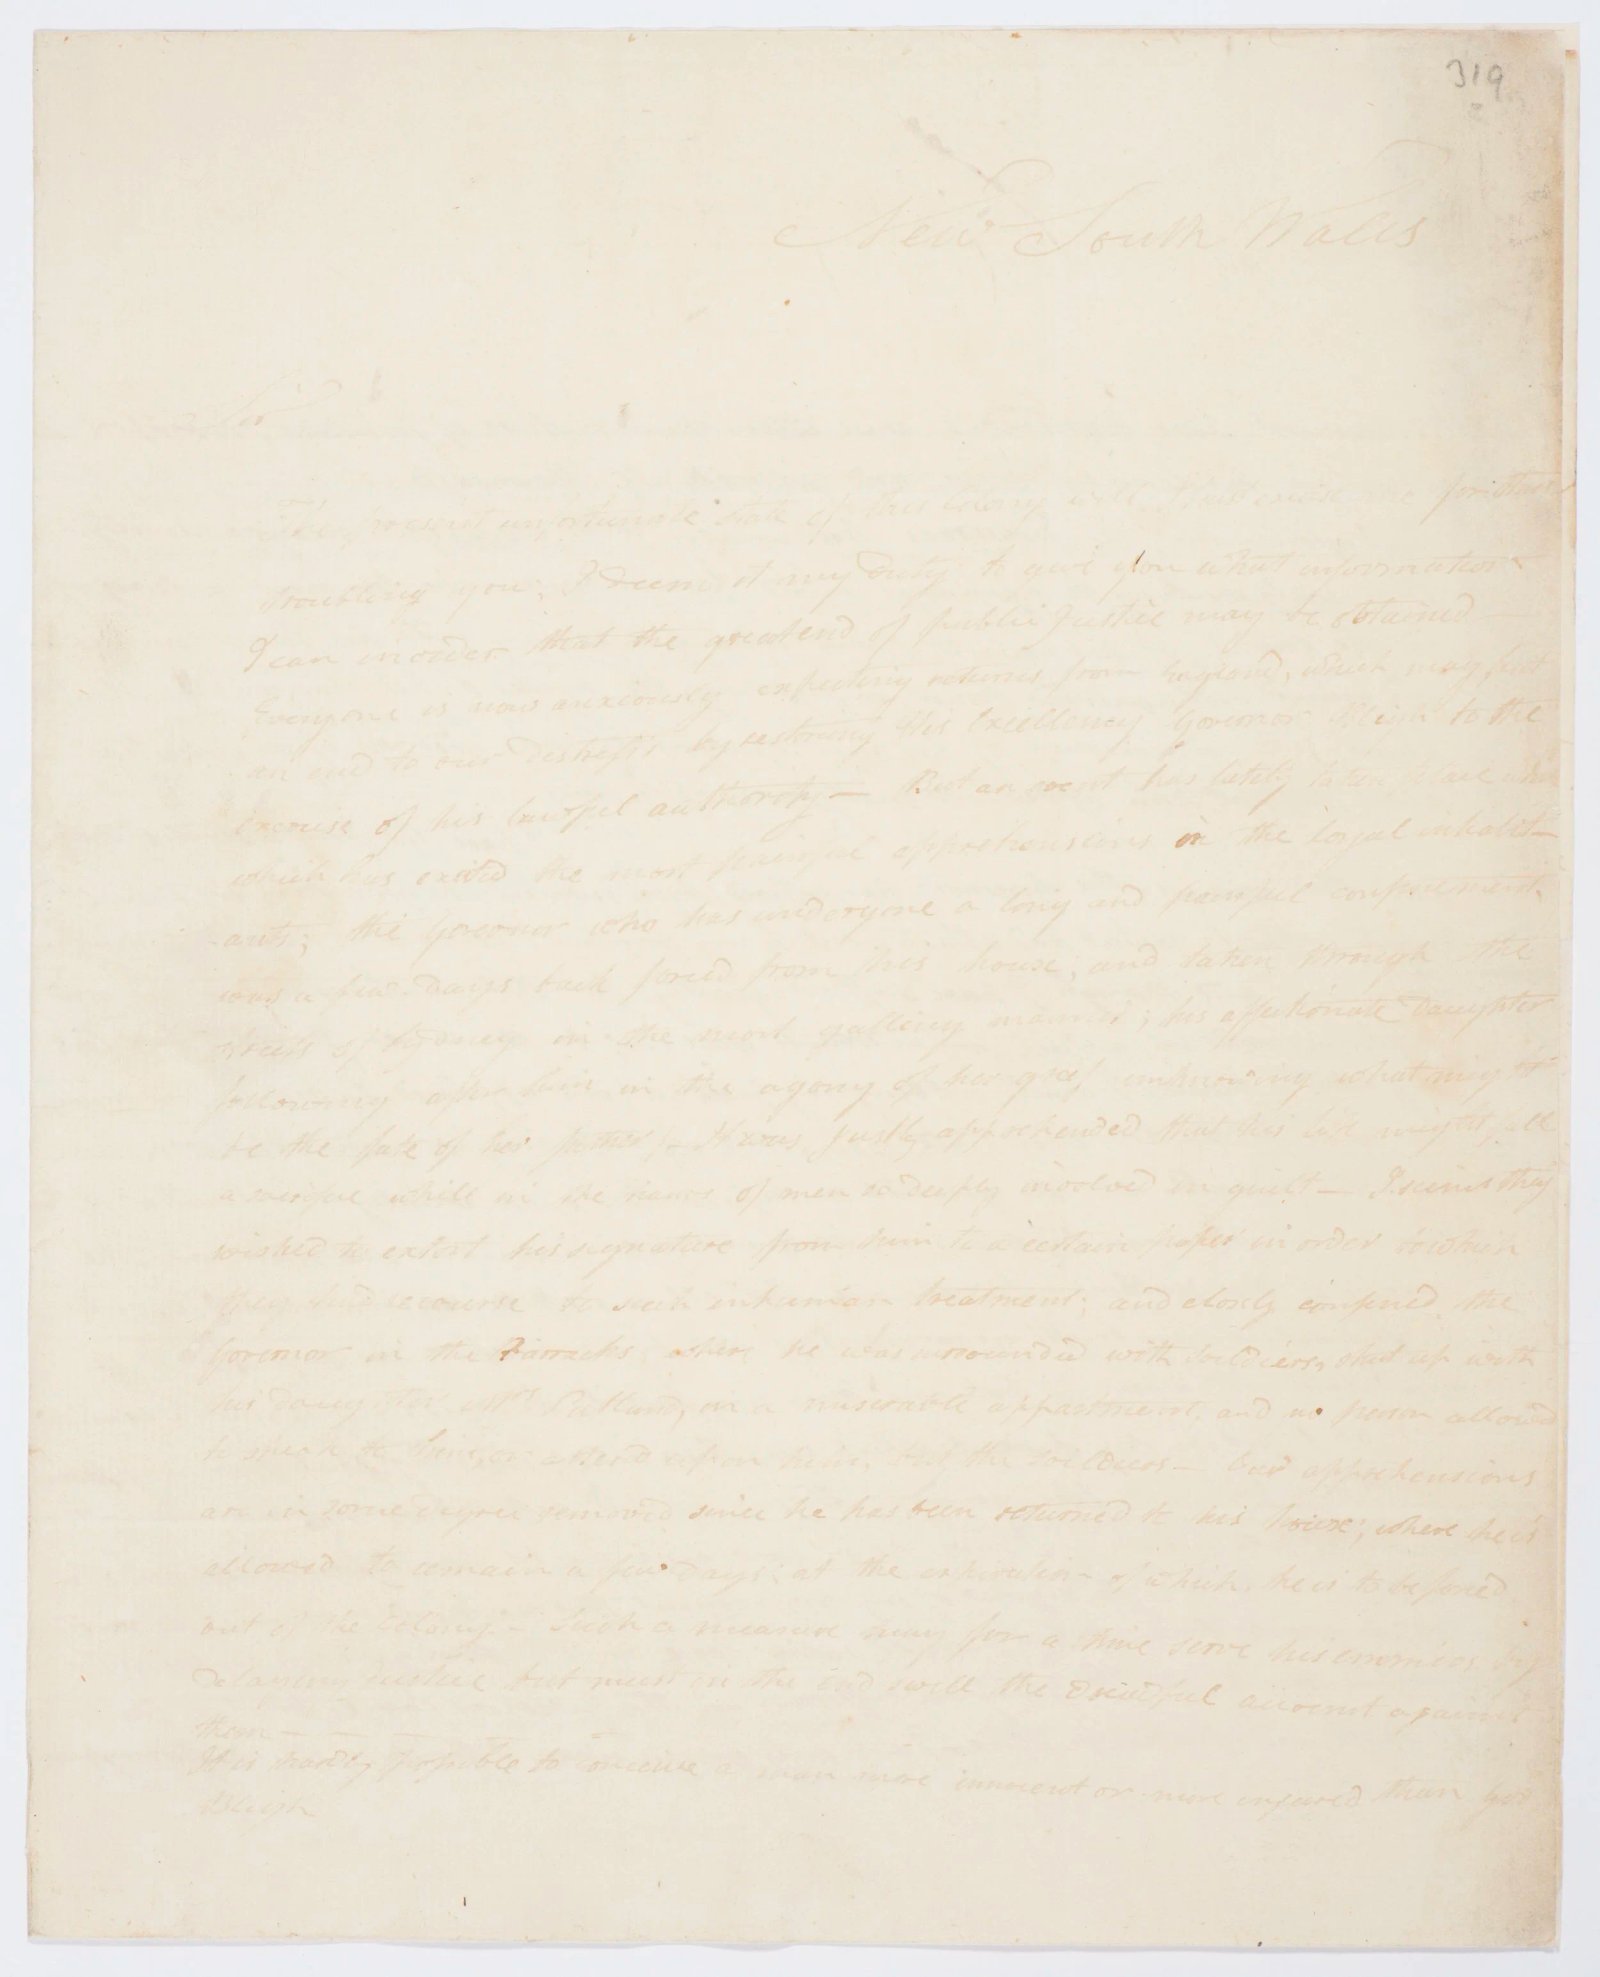 319
New South Wales
Sir
The present unfortunate state of this Colony will I trust excuse me for thus
troubling you; I deem it my duty to give you what information
I can in order that the great end of public Justice may be obtained —
Everyone is now anxiously expecting returns from England, which may put
an end to our distress by restoring His Excellency Governor Bligh to the
exercise of his lawful authority — But an event has lately taken place
which has excited the most painful apprehensions in the loyal inhabit-
-ants; the Governor who has undergone a long and painful confinement
was a few days back forced from his house, and taken through the
streets of Sydney in the most galling manner; his affectionate Daughter
following after him in the agony of her grief unknowing what might
be the fate of her father! — It was justly apprehended that his life might fall
a sacrifice while in the hands of men so deeply involved in guilt — It seems they
wished to extort his signature from him to a certain paper in order to which
they had recourse to such inhuman treatment; and closely confined the
Governor in the Barracks where he was surrounded with soldiers, shut up with
his daughter Mrs Putland, in a miserable appartment, and no person allowed
to speak to him, or attend upon him, but the soldiers — Our apprehensions
are in some degree removed since he has been returned to his house; where he is
allowed to remain a few days; at the expiration of which, he is to be forced
out of the Colony — Such a measure may for a time serve his enemies by
delaying justice but must in the end swell the dreadful account against
them — — — —
It is hardly possible to conceive a man more innocent or more injured than Gov
Bligh